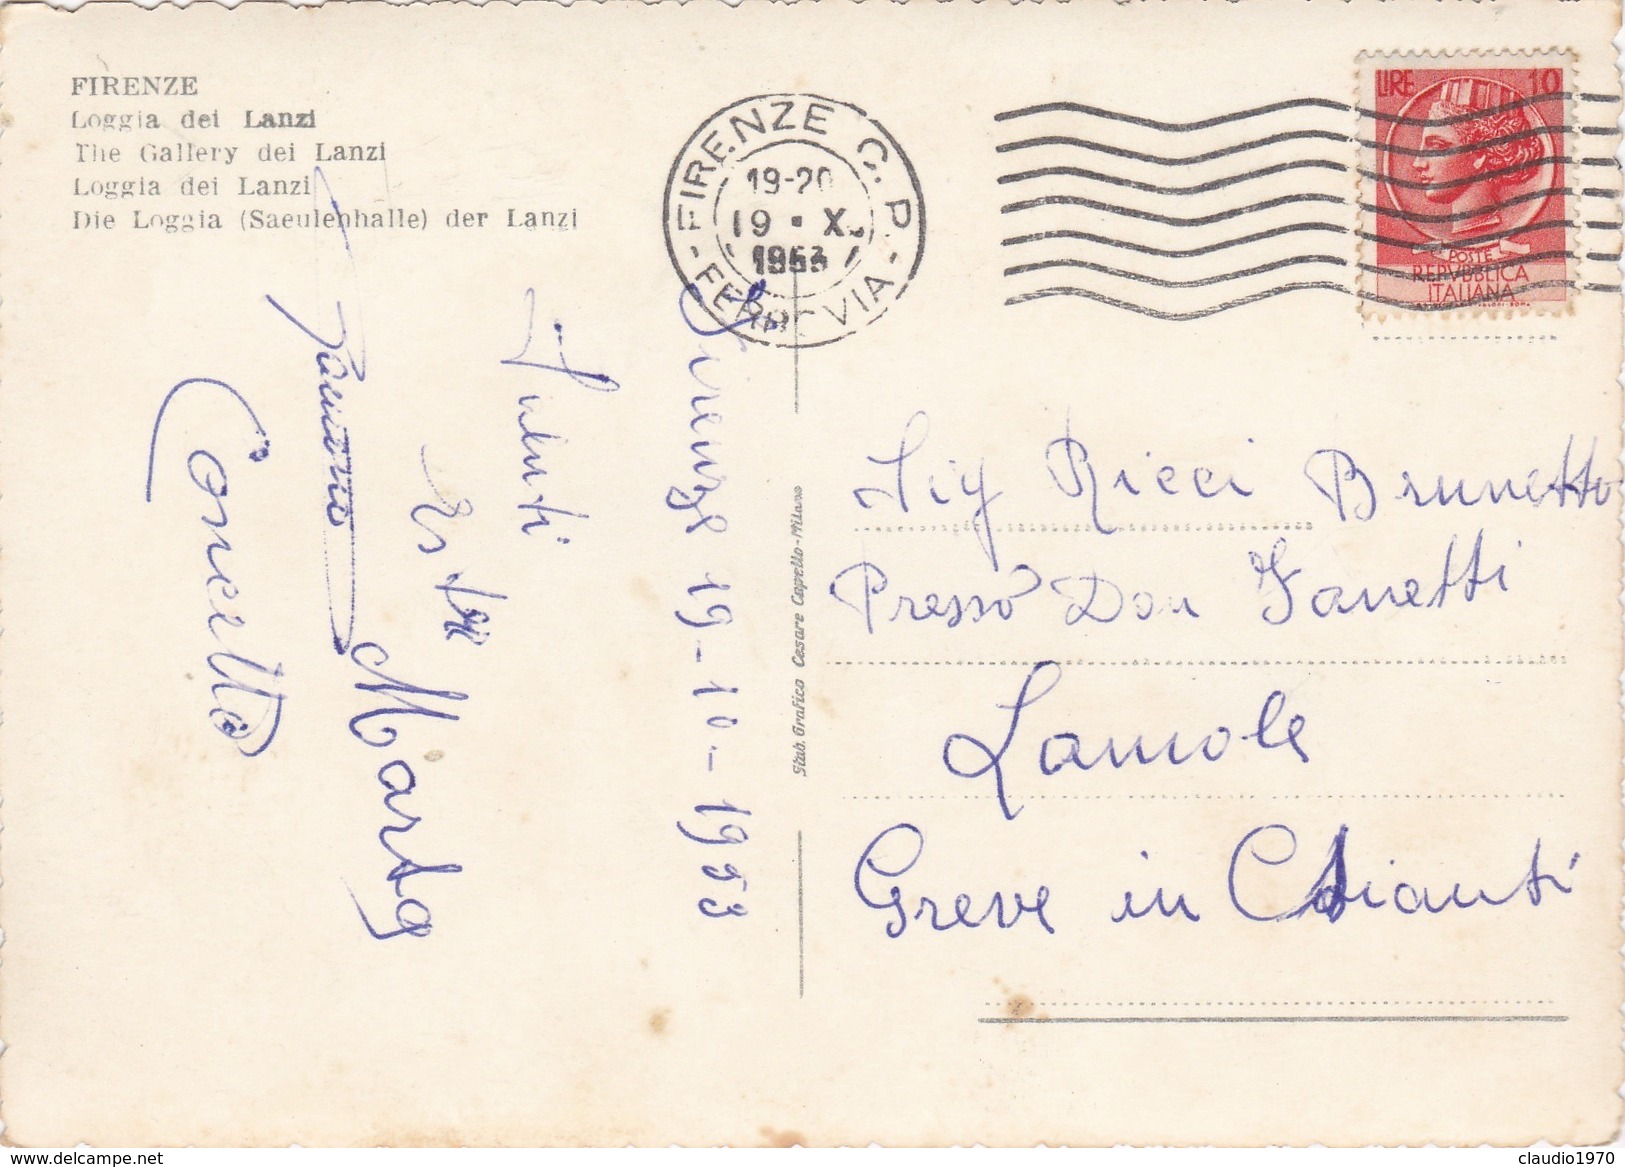 FIRENZE
Loggia dei Lanzi
The Gallery dei Lanzi
Loggia dei Lanzi
Die Loggia (Saeulenhalle) der Lanzi
FIRENZE C.P.
19-20
19 • X.
1953
- FERROVIA -
LIRE 10
POSTE
REPVBBLICA
ITALIANA
Firenze 19-10-1953
Saluti
Ester
Marta
Concetta
Stab. Grafico Cesare Capello - Milano
Sig Ricci Brunetto
Presso Don Zanetti
Lamole
Greve in Chianti
claudio1970